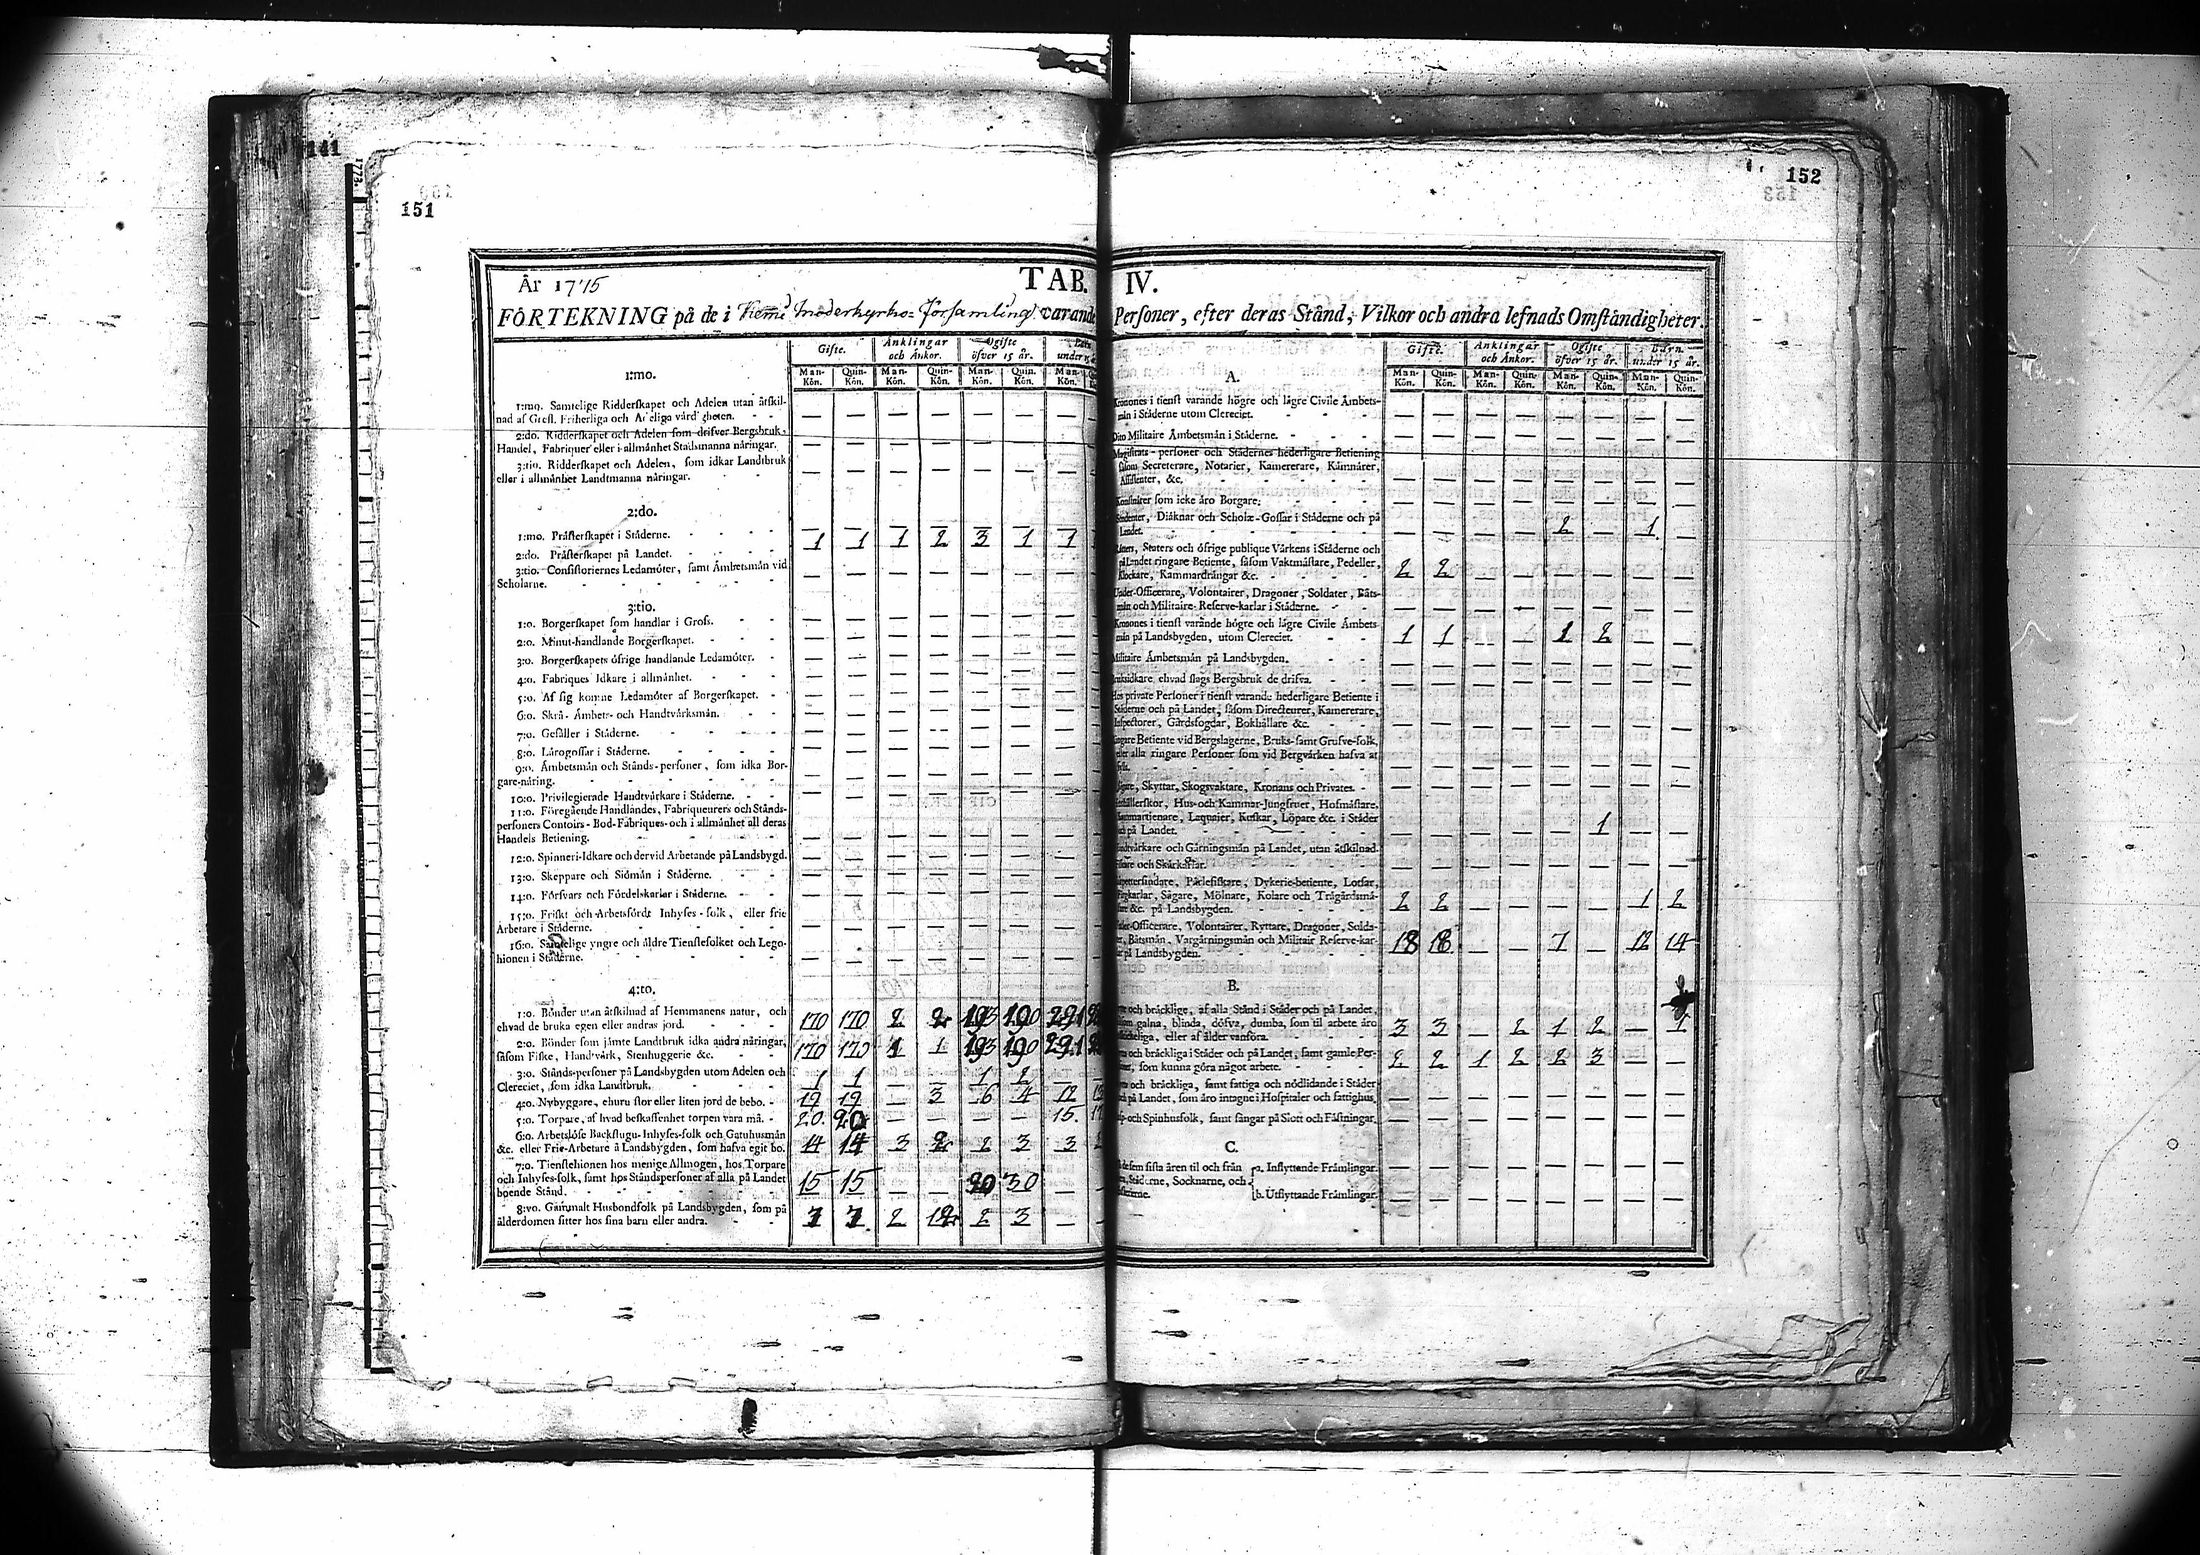 141
1773.
151
År 1775
TAB.
FÖRTEKNING på de i Kemi Moderkyrko-Församling varande
Gifte.
Änklingar och Änkor.
Ogifte öfver 15 år.
Barn under 15
Man-Kön. Quin-Kön. Man-Kön. Quin-Kön. Man-Kön. Quin-Kön. Man-Kön.
1:mo.
1:mo. Samtelige Ridderskapet och Adelen utan åtskil-
nad af Grefl. Friherliga och Adeliga värdigheten. — — — — — — —
2:do. Ridderskapet och Adelen som drifver Bergsbruk,
Handel, Fabriquer eller i allmänhet Stadsmanna näringar. — — — — — — —
3:tio. Ridderskapet och Adelen, som idkar Landtbruk
eller i allmänhet Landtmanna näringar. — — — — — — —
2:do.
1:mo. Prästerskapet i Städerne. — — — — — — —
2:do. Prästerskapet på Landet. 1 1 1 2 3 1 1
3:tio. Consistoriernes Ledamöter, samt Ämbetsmän vid
Scholarne. — — — — — — —
3:tio.
1:o. Borgerskapet som handlar i Gross. — — — — — — —
2:o. Minut-handlande Borgerskapet. — — — — — — —
3:o. Borgerskapets öfrige handlande Ledamöter. — — — — — — —
4:o. Fabriques Idkare i allmänhet. — — — — — — —
5:o. Af sig komne Ledamöter af Borgerskapet. — — — — — — —
6:o. Skrå- Ämbets- och Handtvärksmän. — — — — — — —
7:o. Gesäller i Städerne. — — — — — — —
8:o. Lärogossar i Städerne. — — — — — — —
9:o. Ämbetsmän och Stånds-personer, som idka Bor-
gare-näring. — — — — — — —
10:o. Privilegierade Handtvärkare i Städerne. — — — — — — —
11:o. Föregående Handlandes, Fabriqueurers och Stånds-
personers Contoirs- Bod- Fabriques- och i allmänhet all deras
Handels Betiening. — — — — — — —
12:o. Spinneri-Idkare och dervid Arbetande på Landsbygd. — — — — — — —
13:o. Skeppare och Siömän i Städerne. — — — — — — —
14:o. Försvars och Fördelskarlar i Städerne. — — — — — — —
15:o. Friskt och Arbetsfördt Inhyses-folk, eller frie
Arbetare i Städerne. — — — — — — —
16:o. Samtelige yngre och äldre Tienstefolket och Lego-
hionen i Städerne. — — — — — — —
4:to.
1:o. Bönder utan åtskilnad af Hemmanens natur, och
ehvad de bruka egen eller andras jord. 170 170 2 2 193 190 291
2:o. Bönder som jämte Landtbruk idka andra näringar,
såsom Fiske, Handtvärk, Stenhuggerie &c. 170 170 1 1 193 190 291
3:o. Stånds-personer på Landsbygden utom Adelen och
Clereciet, som idka Landtbruk. 1 1 — — 1 2 —
4:o. Nybyggare, ehuru stor eller liten jord de bebo. 19 19 — 3 6 4 12
5:o. Torpare, af hvad beskaffenhet torpen vara må. 20. 20 — — — — 15.
6:o. Arbetslöse Backstugu-Inhyses-folk och Gatuhusmän
&c. eller Frie-Arbetare å Landsbygden, som hafva egit bo. 14 14 3 2 2 3 3
7:o. Tienstehionen hos menige Allmogen, hos Torpare
och Inhyses-folk, samt hos Ståndspersoner af alla på Landet
boende Stånd. 15 15 — — 30 30 —
8:vo. Gammalt Husbondfolk på Landsbygden, som på
ålderdomen sitter hos sina barn eller andra. 7 7. 2 12 2 3 —
152
153
IV.
Personer, efter deras Stånd, Vilkor och andra lefnads Omständigheter.
Gifte.
Änklingar och Änkor.
Ogifte öfver 15 år.
Barn under 15 år.
Man-Kön. Quin-Kön. Man-Kön. Quin-Kön. Man-Kön. Quin-Kön. Man-Kön. Quin-Kön.
A.
Kronones i tienst varande högre och lägre Civile Ämbets-
män i Städerne utom Clereciet. — — — — — — — —
Dito Militaire Ämbetsmän i Städerne. — — — — — — — —
Magistrats-personer och Städernes hederligare Betiening
såsom Secreterare, Notarier, Kamererare, Kämnärer,
Assistenter, &c. — — — — — — — —
som icke äro Borgare. — — — — — — — —
Studenter, Diäknar och Scholæ-Gossar i Städerne och på
Landet. — — — — 2 — 1. —
Staters och öfrige publique Värkens i Städerne och
på Landet ringare Betiente, såsom Vaktmästare, Pedeller,
Klockare, Kammardrängar &c. 2 2 — — — — — —
Under-Officerare, Volontairer, Dragoner, Soldater, Båts-
män och Militaire-Reserve-karlar i Städerne. — — — — — — — —
Kronones i tienst varande högre och lägre Civile Ämbets-
män på Landsbygden, utom Clereciet. 1 1 — — 1 2 — —
Militaire Ämbetsmän på Landsbygden. — — — — — — — —
ehvad slags Bergsbruk de drifva. — — — — — — — —
Hos private Personer i tienst varande hederligare Betiente i
Städerne och på Landet, såsom Directeurer, Kamererare,
Inspectorer, Gårdsfogdar, Bokhållare &c. — — — — — — — —
Ringare Betiente vid Bergslagerne, Bruks- samt Grufve-folk,
eller alla ringare Personer som vid Bergvärken hafva at
— — — — — — — —
Skyttar, Skogsvaktare, Kronans och Privates. — — — — — — — —
Hushållerskor, Hus- och Kammar-Jungfruer, Hofmästare,
Kammartienare, Laquaier, Kuskar, Löpare &c. i Städer
och på Landet. — — — — — 1 — —
Handtvärkare och Gärningsmän på Landet, utan åtskilnad.
Fiskare och Skärkarlar. — — — — — — — —
Pärlefiskare, Dykerie-betiente, Lotsar,
Sågare, Mölnare, Kolare och Trägårdsmä-
&c. på Landsbygden. 2 2 — — — — 1 2
Under-Officerare, Volontairer, Ryttare, Dragoner, Solda-
ter, Båtsmän, Vargärningsmän och Militair Reserve-kar-
lar på Landsbygden. 18 18 — — 7 — 12 14
B.
och bräcklige, af alla Stånd i Städer och på Landet,
såsom galna, blinda, döfva, dumba, som til arbete äro
eller af ålder vanföra. 3 3 — 2 1 2 — 1
och bräckliga i Städer och på Landet, samt gamle Per-
soner, som kunna göra något arbete. 2 2 1 2 2 3 — —
och bräckliga, samt fattiga och nödlidande i Städer
och på Landet, som äro intagne i Hospitaler och fattighus. — — — — — — — —
och Spinhusfolk, samt fångar på Slott och Fästningar. — — — — — — — —
C.
desem sista åren til och från
Städerne, Socknarne, och
a. Inflyttande Främlingar. — — — — — — — —
b. Utflyttande Främlingar. — — — — — — — —